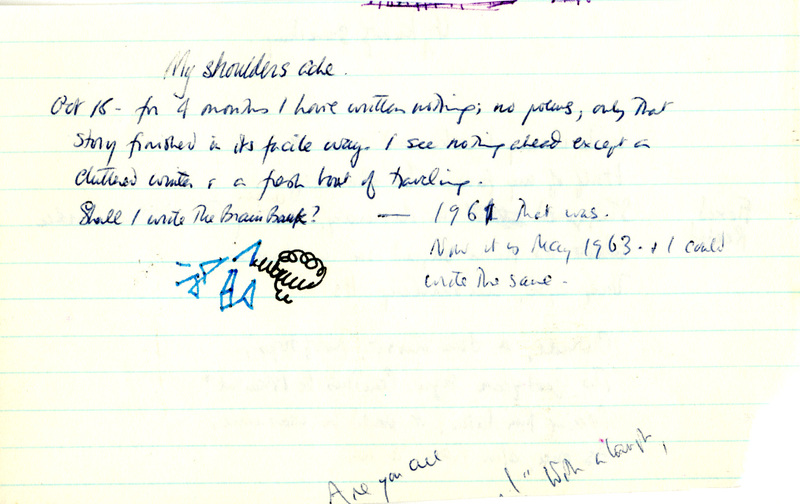 My shoulders ache.
Oct 15 - for 4 months I have written nothing; no poems; only that
story finished in its facile way. I see nothing ahead except a
cluttered winter & a fresh bout of traveling.
Shall I write The Brain Bank? — 1961 that was.
Now it is May 1963 - & I could
write the same -
Are you all
!" With a laugh,